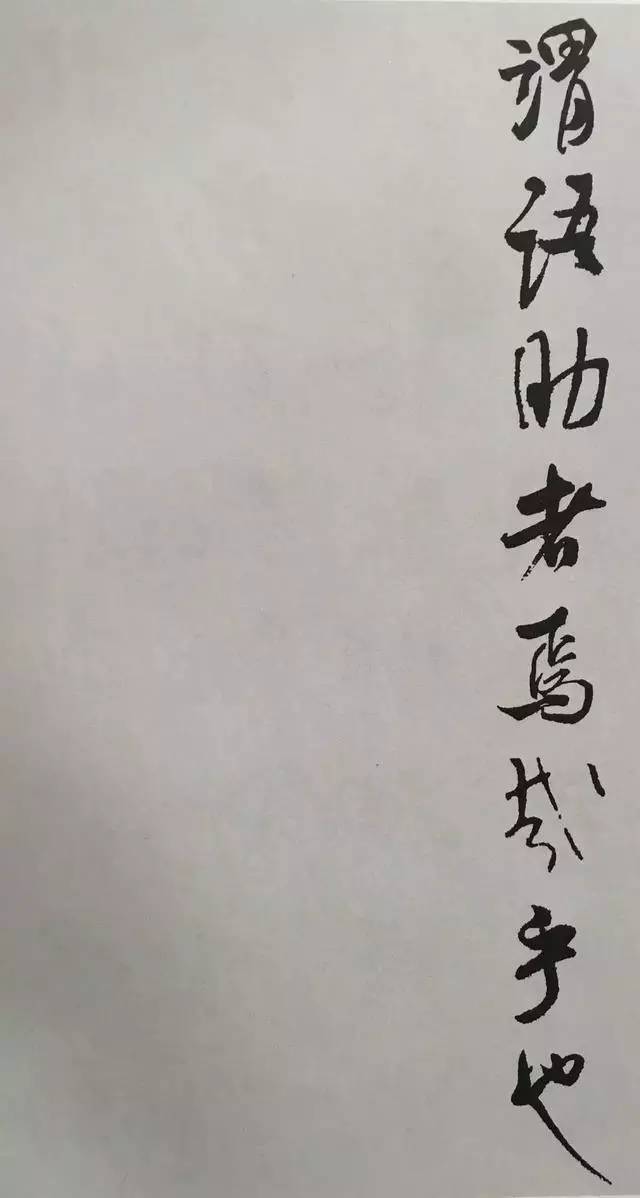 謂語助者焉哉乎也